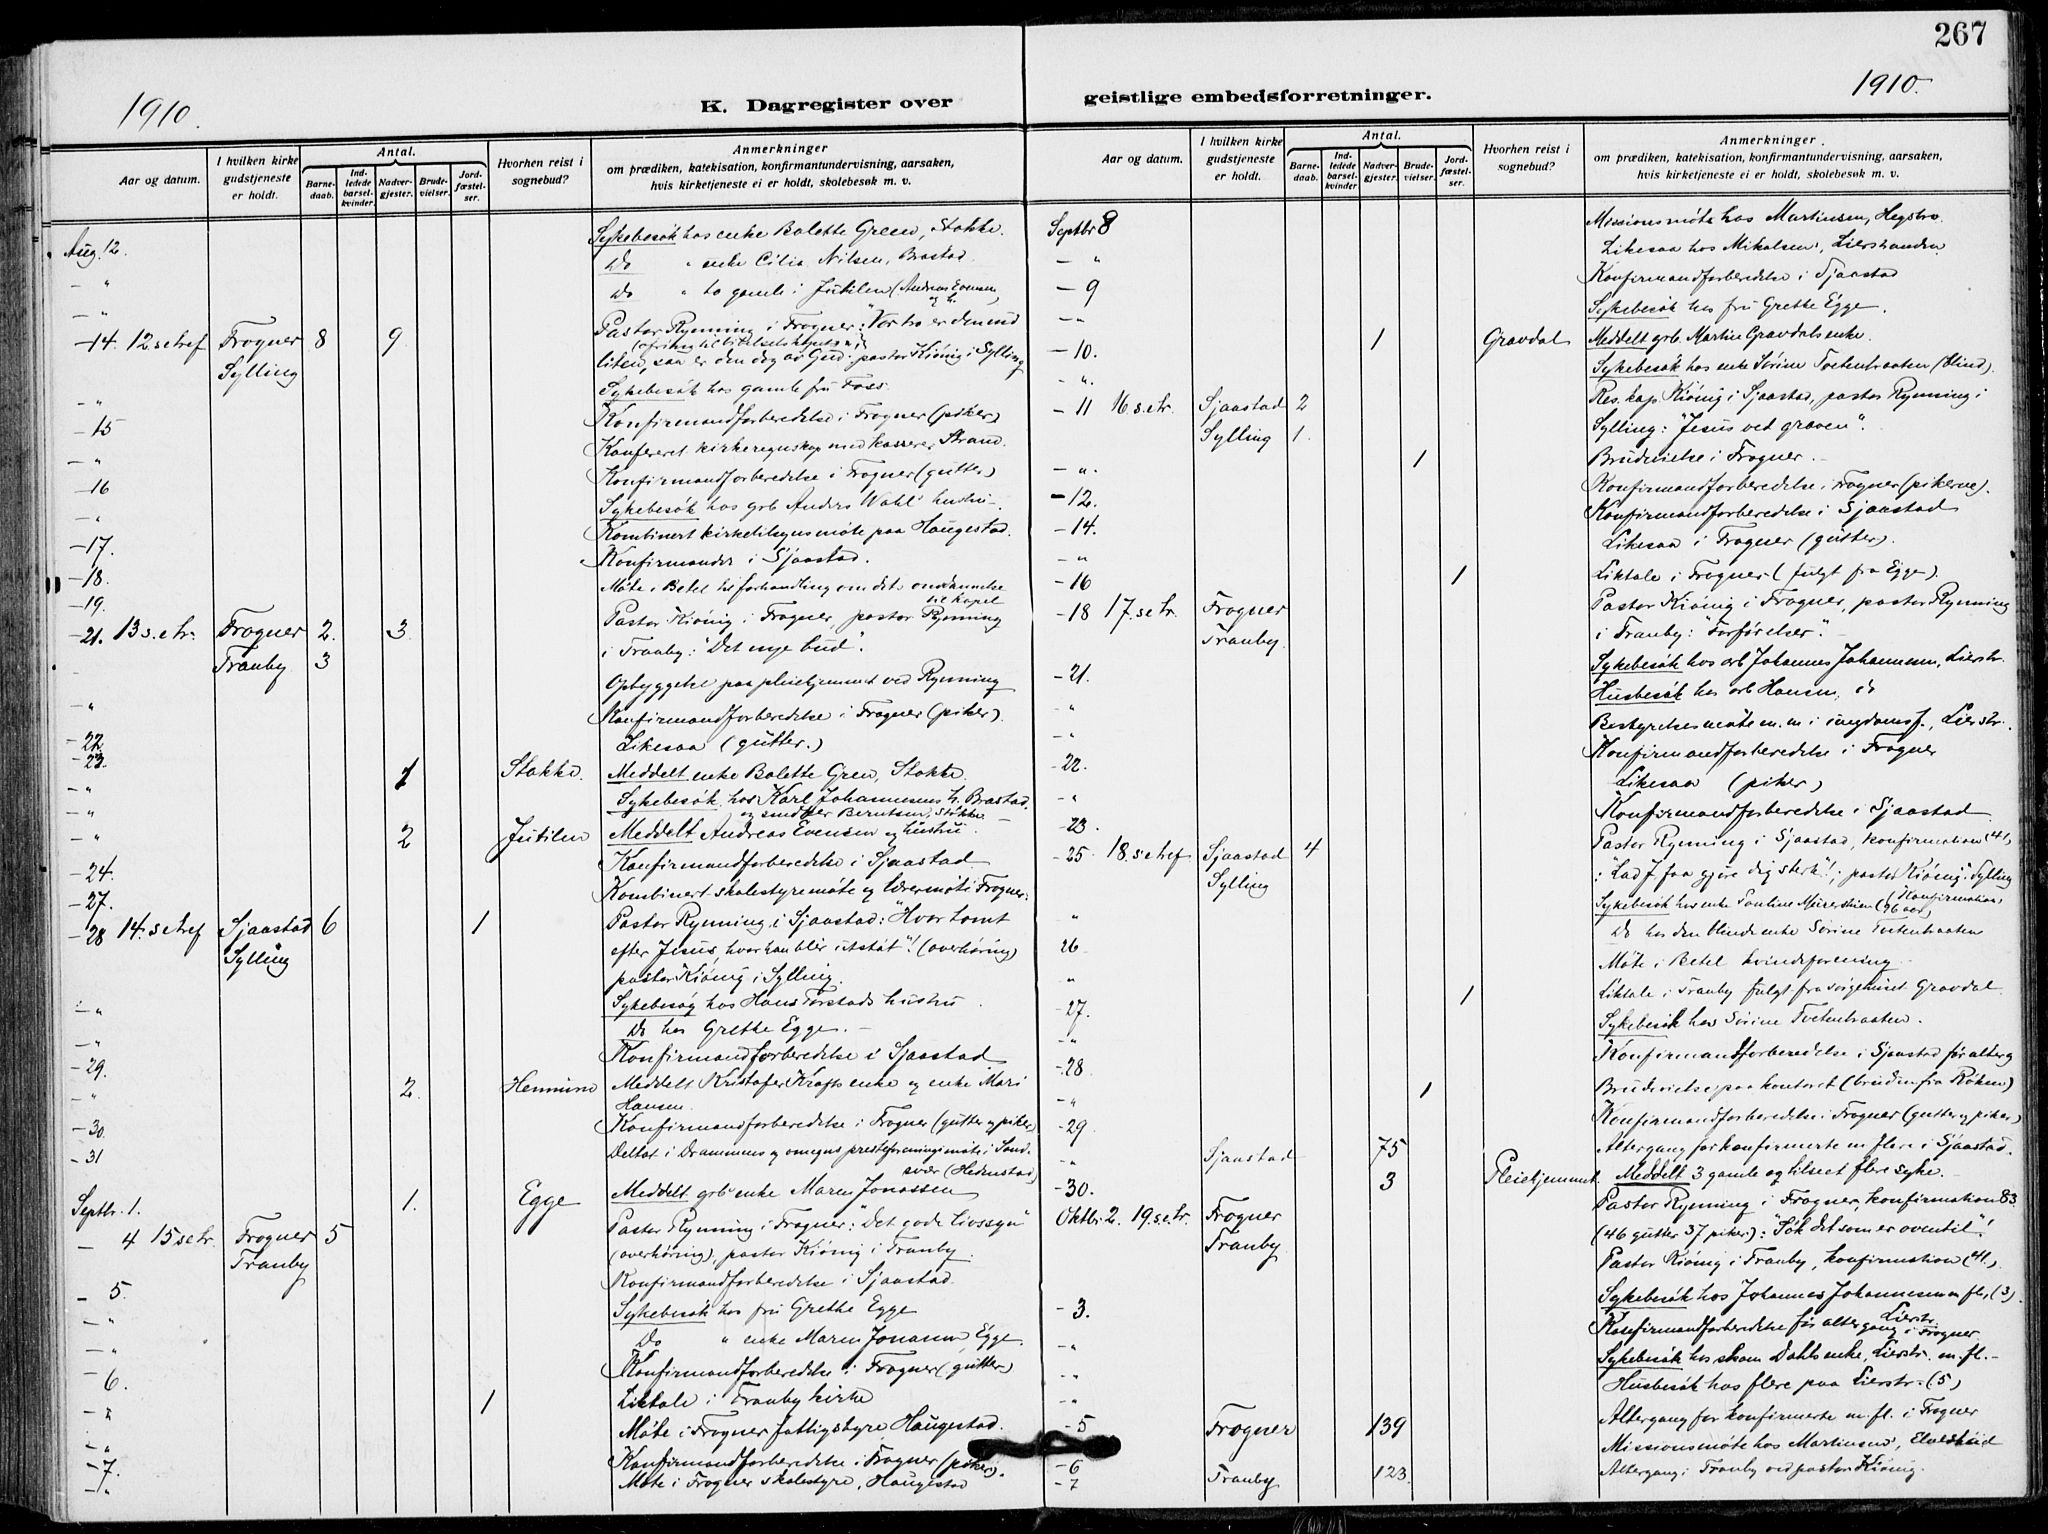 267
1910.
K. Dagregister over
geistlige embedsforretninger.
1910.
Aar og datum.
I hvilken kirke gudstjeneste er holdt.
Antal.
Barnedaab.
Indledede barselkvinder.
Nadvergjester.
Brudevielser.
Jordfæstelser.
Hvorhen reist i sognebud?
Anmerkninger
om prædiken, katekisation, konfirmantundervisning, aarsaken,
hvis kirketjeneste ei er holdt, skolebesøk m. v.
Aug. 12. Sykebesök hos enke Bolette Green, Stokke.
- " Do " enke Cilia Nilsen, Brastad
- " Do " to gamle i Jutilen (Andreas Evensen og h.
- 14. 12. s e tref Frogner 8 9. Pastor Rynning i Frogner: "Vor tro er den end
Sylling liten, saa er den dog av Gud. pastor Kiönig i Sylling
- " Sykebesök hos gamle fru Foss.
- 15 Konfirmandforberedelse i Frogner (piker)
- " Konfereret kirkeregnskap med kasserer Strand.
- 16 Konfirmandforberedelse i Frogner (gutter)
- " Sykebesök hos grb Anders Wahl hustru.
- 17. Kombinert kirketilsynsmöte paa Haugestad.
- 18. Konfirmander i Sjaastad.
- 19. Möte i Betel til forhandling om det omdannelse til kapel
- 21. 13 s. e tr. Frogner 2. 3. Pastor Kiönig i Frogner, pastor Rynning
Tranby 3 i Tranby: "Det nye bud".
- " Opbyggelse paa pleiehjemmet ved Rynning
- 22. Konfirmandforberedelse i Frogner (piker).
- 23. Likesaa (gutter.)
- " 1 Stokke. Meddelt enke Bolette Gren, Stokke.
- " Sykebesök hos Karl Johannesens h. Brastad
og snedker Berntsen, Stokke
- " 2 Jutilen Meddelt Andreas Evensen og hustru.
- 24. Konfirmandforberedelse i Sjaastad
- 27. Kombinert skolestyremöte og lærermöte i Frogner.
- 28 14. s e tref Sjaastad 6 1 Pastor Rynning i Sjaastad: "Hvor tomt
Sylling efter Jesus, hvor han blir utstöt"! (overhöring)
pastor Kiönig i Sylling.
- " Sykebesög hos Hans Torstads hustru.
- " Do hos Grethe Egge.
- 29. Konfirmandforberedelse i Sjaastad
- " 2. Hennum Meddelt Kristofer Krafts enke og enke Mari
Hansen.
- 30. Konfirmandforberedelse i Frogner (gutter og piker)
- 31 Deltat i Drammens og omegns presteforenings möte i Sandsvær (Hedenstad)
Septbr. 1. 1. Egge Meddelt grb enke Maren Jonassen
- 4 15 s e tr. Frogner 5 Pastor Rynning i Frogner: "Det gode livssyn"
Tranby (overhöring), pastor Kiönig i Tranby.
- 5. Konfirmandforberedelse i Sjaastad.
- " Sykebesök hos fru Grethe Egge
- " Do " enke Maren Jonassen, Egge
- 6. Konfirmandforberedelse i Frogner (gutter)
- " 1 Liktale i Tranby kirke
- " Möte i Frogner fattigstyre Haugestad.
- 7. Konfirmandforberedelse i Frogner (piker).
- " Möte i Frogner skolestyre, Haugestad
Aar og datum.
I hvilken kirke gudstjeneste er holdt.
Antal.
Barnedaab.
Indledede barselkvinder
Nadvergjester.
Brudevielser.
Jordfæstelser.
Hvorhen reist i sognebud?
Anmerkninger.
om prædiken, katekisation, konfirmantundervisning, aarsaken,
hvis kirketjeneste ei er holdt, skolebesøk m. v.
Septbr 8 Missionsmöte hos Martinsen, Hegstro.
- " Likesaa hos Mikalsen, Lierstranden.
- 9 Konfirmandforberedelse i Sjaastad
- " Sykebesök hos fru Grethe Egge.
- 10. 1 Gravdal Meddelt grb. Martin Gravdals enke.
- " Sykebesök hos enke Sörine Toetenbraaten (blind).
- 11 16 s. e tr. Sjaastad 2 Res. kap Kiönig i Sjaastad, pastor Rynning i
Sylling 1. Sylling: "Jesus ved graven".
- " 1 Brudevielse i Frogner.
- 12. Konfirmandforberedelse i Frogner (pikerne).
- 14. Konfirmandforberedelse i Sjaastad
- " Likesaa i Frogner (gutter).
- 16 1 Liktale i Frogner (fulgt fra Egge).
- 18 17. s e tr. Frogner Pastor Kiönig i Frogner, pastor Rynning
Tranby. i Tranby: "Forförelser".
- 21. Sykebesök hos arb Johannes Johannesen, Lierstr.
- " Husbesök hos arb Hansen, do
- " Bestyrelsesmöte m. m i ungdomsf., Lierstr.
- 22. Konfirmandforberedelse i Frogner
- " Likesaa (piker)
- 23. Konfirmandforberedelse i Sjaastad
- 25. 18. s e tref Sjaastad 4 Pastor Rynning i Sjaastad, konfirmation (41)
Sylling : "Lad J faa gjöre dig sterk"!; pastor Kiönig i Sylling
(konfirmation)
" Sykebesök hos enke Pauline (96 aar)
26 Do hos den blinde enke Sörine Toetenbraaten
" Möte i Betel kvindeforening
- 27. 1 Liktale i Tranby fulgt fra sörgehuset Gravdal
- " Sykebesök hos Sörine Toetenbraaten.
- 28 Konfirmandforberedelse i Sjaastad för alterg
- " 1 Brudevielse paa kontoret (bruden fra Röken)
- 29 Konfirmandforberedelse i Frogner (gutter og piker)
" Sjaastad 75 Altergang for konfirmerte m flere i Sjaastad.
- 30. 3 Pleiehjemmet Meddelt 3 gamle og tilseet flere syke.
Oktbr. 2. 19. s. e. tr. Frogner Pastor Rynning i Frogner, konfirmation 83
Tranby (46 gutter 37 piker): "Sök det som er oventil"!
Pastor Kiönig i Tranby, konfirmation (41.)
- 3. Sykebesök hos Johannes Johannesen m fl. (3)
Lierstr.
- " Konfirmandforberedelse för altergang i Frogner
" Sykebesök hos skom Dahls enke, Lierstr. m. fl.
" Husbesök hos flere paa Lierstr. (5)
- 5 Frogner 139 Altergang for konfirmerte m. fl. i Frogner
- 6 Missionsmöte hos Martinsen,
- 7 Tranby 123 Altergang i Tranby ved pastor Kiönig.